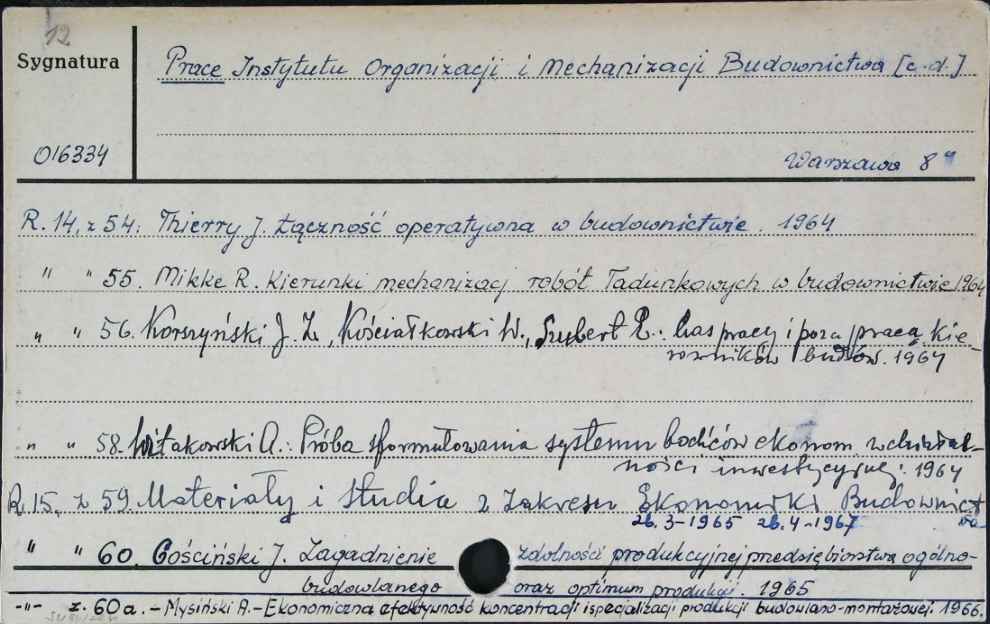 12
Sygnatura
Prace Instytutu Organizacji i Mechanizacji Budownictwa [c.d.]
016334
Warszawa 8°
R. 14, z 54: Thierry J. Łączność operatywna w budownictwie. 1964
" " 55. Mikke R. Kierunki mechanizacj robót ładunkowych w budownictwie 1964
" " 56. Korszyński J. Z., Kościałkowski W., Szubert E.: Czas pracy i poza pracą kie-
rowników budów. 1964
" " 58. Witakowski A.: Próba sformułowania systemu bodźców ekonom. w działal-
ności inwestycyjnej. 1964
R. 15, z 59. Materiały i studia z zakresu Ekonomiki Budownict
wa
z6. 3-1965 z6. 4-1967
" " 60. Gościński J. Zagadnienie zdolności produkcyjnej przedsiębiorstwa ogólno-
budowlanego oraz optimum produkcji. 1965
-"- z. 60a. - Mysiński A. - Ekonomiczna efektywność koncentracji i specjalizacji produkcji budowlano-montażowej. 1966.